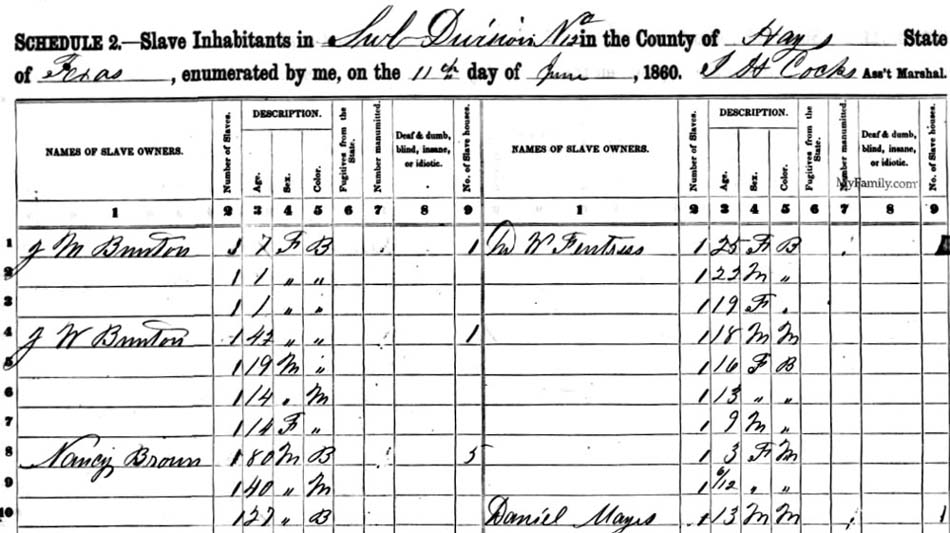 SCHEDULE 2.—Slave Inhabitants in Sub Division No in the County of Hays State
of Texas, enumerated by me, on the 11th day of June, 1860. J H Cocks Ass't Marshal.
NAMES OF SLAVE OWNERS. Number of Slaves. DESCRIPTION. Age. Sex. Color. Fugitives from the State. Number manumitted. Deaf & dumb, blind, insane, or idiotic. No. of Slave houses. NAMES OF SLAVE OWNERS. Number of Slaves. DESCRIPTION. Age. Sex. Color. Fugitives from the State. Number manumitted. Deaf & dumb, blind, insane, or idiotic. No. of Slave houses.
MyFamily.com
1 2 3 4 5 6 7 8 9 1 2 3 4 5 6 7 8 9
1 J M Bunton 1 7 F B 1 M W Fentress 1 25 F B
2 1 1 " " 1 22 M "
3 1 1 " " 1 19 F "
4 J W Bunton 1 42 " " 1 1 18 M M
5 1 19 M " 1 16 F B
6 1 14 " M 1 13 " "
7 1 14 F " 1 9 M "
8 Nancy Brown 1 80 M B 5 1 3 F M
9 1 40 " M 1 6/12 " "
10 1 27 " B Daniel Mayes 1 13 M M 1